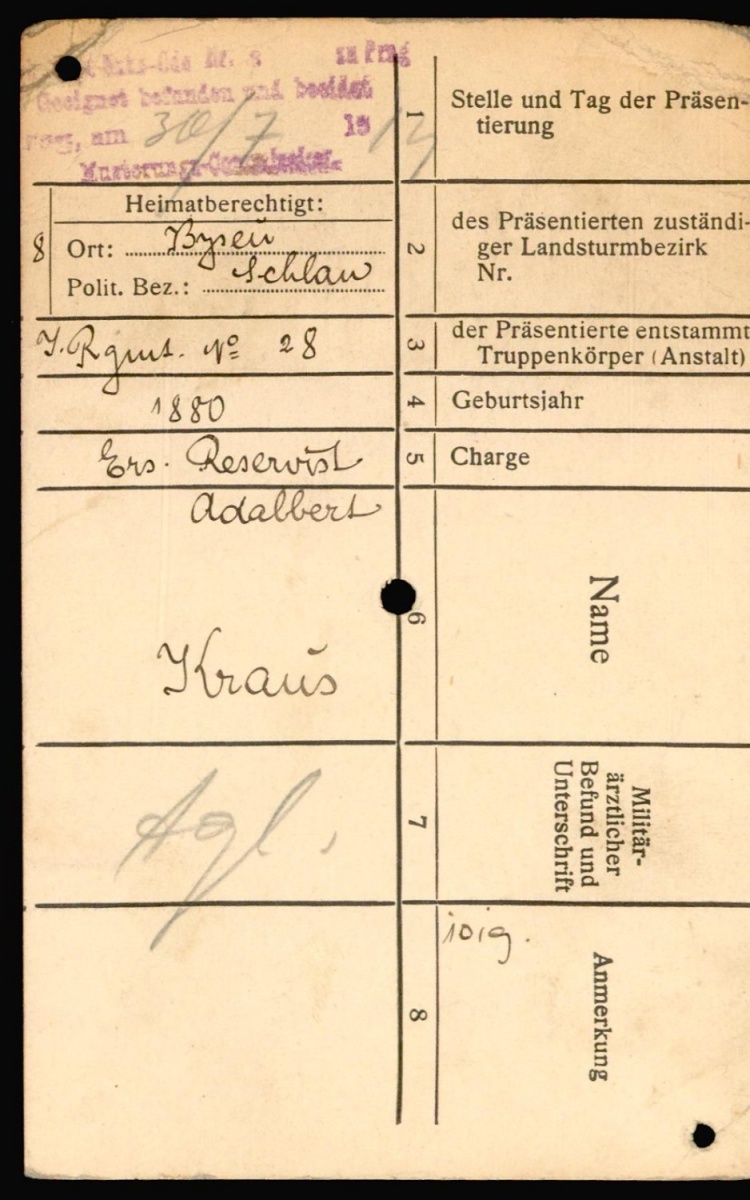 zu Prag
Geeignet befunden und beeidet
am 30/7 19 14
Musterungs-
1
Stelle und Tag der Präsen-
tierung
Heimatberechtigt:
8
Ort: Byseň
Polit. Bez.: Schlan
2
des Präsentierten zuständi-
ger Landsturmbezirk
Nr.
I. Rgmt. No 28
3
der Präsentierte entstammt
Truppenkörper (Anstalt)
1880
4
Geburtsjahr
Ers. Reservist
5
Charge
Adalbert
Kraus
6
Name
Agl.
7
Militär-
ärztlicher
Befund und
Unterschrift
8
Anmerkung